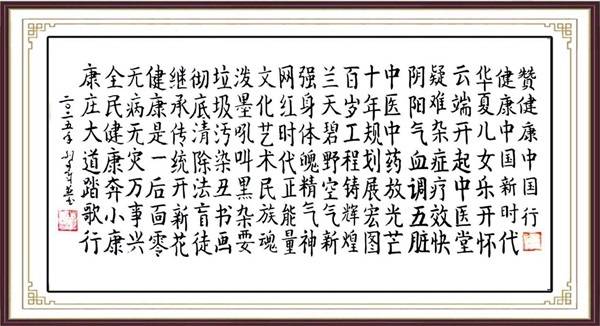 赞健康中国行
健康中国新时代
华夏儿女乐开怀
云端开起中医堂
疑难杂症疗效快
阴阳气血调五脏
中医中药放光芒
十年规划展宏图
百岁工程铸辉煌
兰天碧野空气新
强身体魄精气神
网红时代正能量
文化艺术民族魂
泼墨吼叫黑杂耍
垃圾污染丑书画
彻底清除法盲徒
继承传统开新花
健康是一后面零
无病无灾万事兴
全民健康奔小康
康庄大道踏歌行
二〇二五年